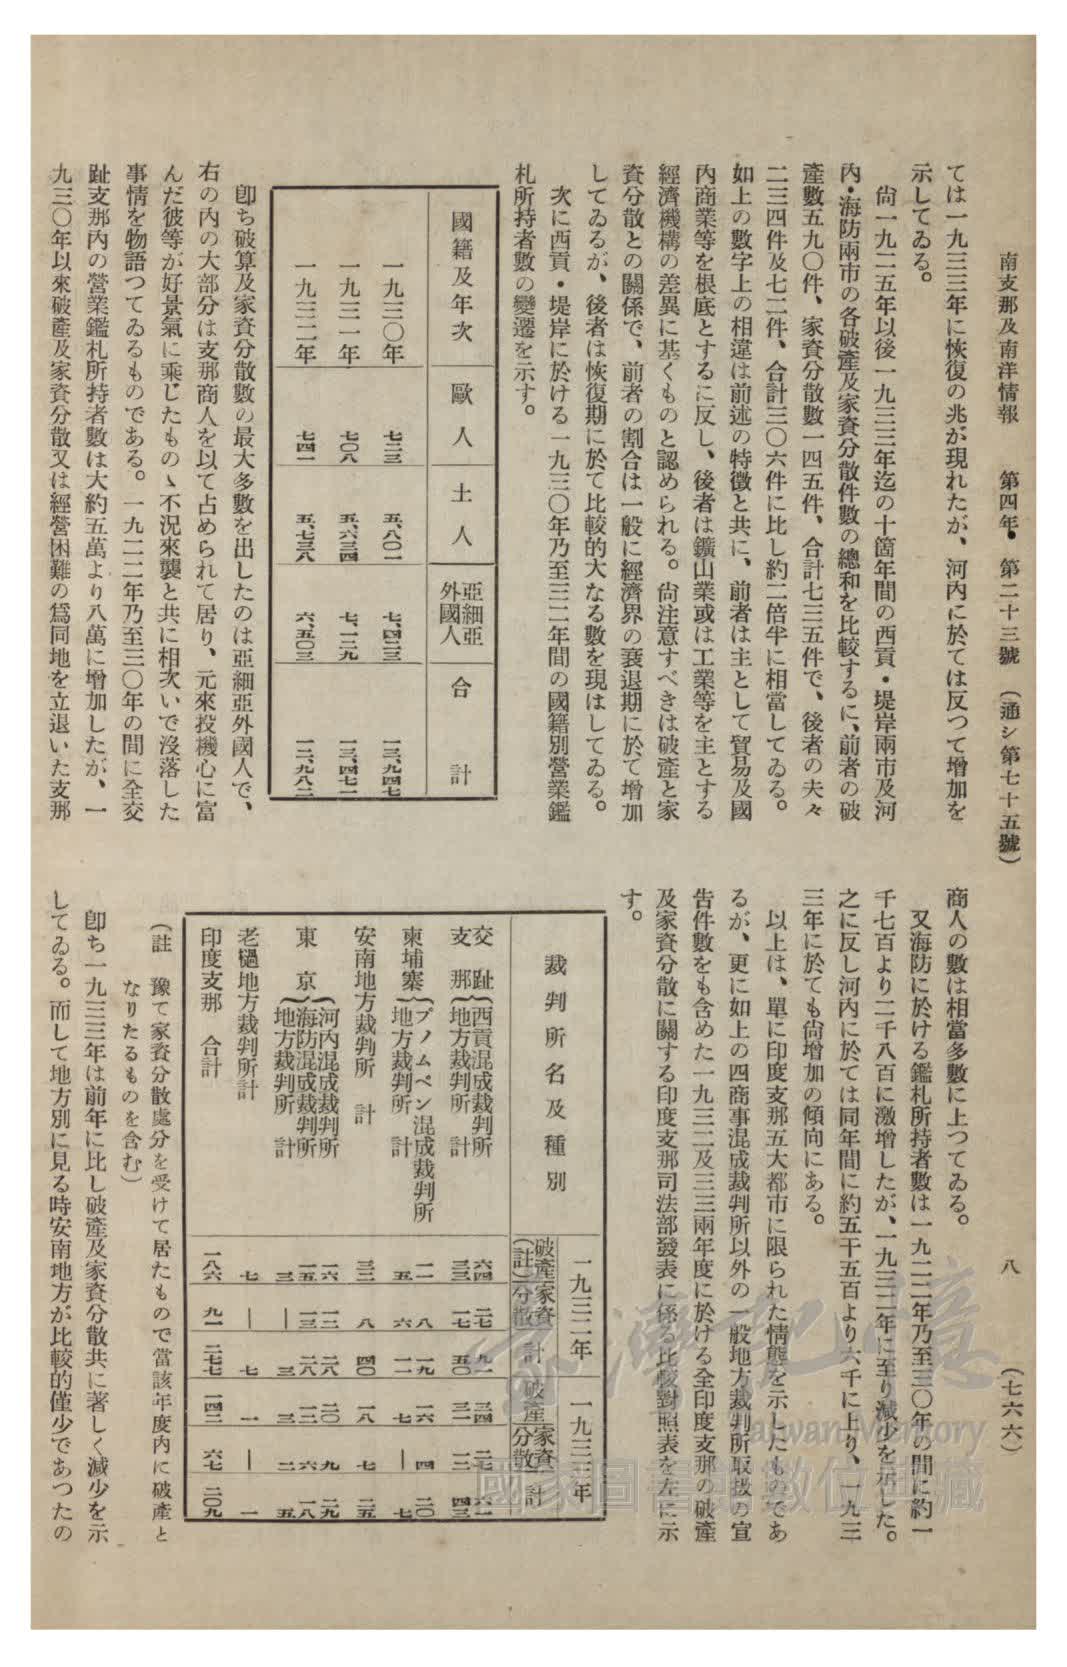 南支那及南洋情報　第四年・第二十三號　（通シ第七十五號）　八　（七六六）
ては一九三三年に恢復の兆が現れたが、河内に於ては反つて增加を
示してゐる。
尙一九二五年以後一九三三年迄の十箇年間の西貢・堤岸兩市及河
內・海防兩市の各破產及家資分散件數の總和を比較するに、前者の破
產數五九〇件、家資分散數一四五件、合計七三五件で、後者の夫々
二三四件及七二件、合計三〇六件に比し約二倍半に相當してゐる。
如上の數字上の相違は前述の特徵と共に、前者は主として貿易及國
內商業等を根底とするに反し、後者は鑛山業或は工業等を主とする
經濟機構の差異に基くものと認められる。尙注意すべきは破產と家
資分散との關係で、前者の割合は一般に經濟界の衰退期に於て增加
してゐるが、後者は恢復期に於て比較的大なる數を現はしてゐる。
次に西貢・堤岸に於ける一九三〇年乃至三二年間の國籍別營業鑑
札所持者數の變遷を示す。
國籍及年次　歐人　土人　亞細亞外國人　合計
一九三〇年　七二三　五、八〇一　七、四二三　一三、九四七
一九三一年　七〇八　五、六三四　七、一二九　一三、四七一
一九三二年　七四一　五、七三八　六、五〇三　一二、九八二
卽ち破算及家資分散數の最大多數を出したのは亞細亞外國人で、
右の內の大部分は支那商人を以て占められて居り、元來投機心に富
んだ彼等が好景氣に乘じたものゝ不況來襲と共に相次いで沒落した
事情を物語つてゐるものである。一九二二年乃至三〇年の間に全交
趾支那內の營業鑑札所持者數は大約五萬より八萬に增加したが、一
九三〇年以來破產及家資分散又は經營困難の爲同地を立退いた支那
商人の數は相當多數に上つてゐる。
又海防に於ける鑑札所持者數は一九二二年乃至三〇年の間に約一
千七百より二千八百に激增したが、一九三二年に至り減少を示した。
之に反し河內に於ては同年間に約五千五百より六千に上り、一九三
三年に於ても尙增加の傾向にある。
以上は、單に印度支那五大都市に限られた情態を示したものであ
るが、更に如上の四商事混成裁判所以外の一般地方裁判所取扱の宣
告件數をも含めた一九三二及三三兩年度に於ける全印度支那の破產
及家資分散に關する印度支那司法部發表に係る比較對照表を左に示
す。
裁判所名及種別　一九三二年　破產（註）　家資分散　計　一九三三年　破產　家資分散　計
交趾支那　西貢混成裁判所　六四　二七　九一　三四　二七　六一
地方裁判所　計　三三　一七　五〇　三一　一二　四三
柬埔寨　プノムペン混成裁判所　一一　八　一九　一六　四　二〇
地方裁判所　計　五　六　一一　七　｜　七
安南地方裁判所　計　三二　八　四〇　一八　七　二五
東京　河內混成裁判所　一六　一二　二八　二〇　九　二九
海防混成裁判所　一五　一三　二八　一二　六　一八
地方裁判所　計　三　｜　三　三　二　五
老檛地方裁判所計　七　｜　七　一　｜　一
印度支那　合計　一八六　九一　二七七　一四二　六七　二〇九
（註　豫て家資分散處分を受けて居たもので當該年度內に破產と
なりたるものを含む）
卽ち一九三三年は前年に比し破產及家資分散共に著しく減少を示
してゐる。而して地方別に見る時安南地方が比較的僅少であつたの
臺灣記憶
Taiwan Memory
國家圖書館數位典藏